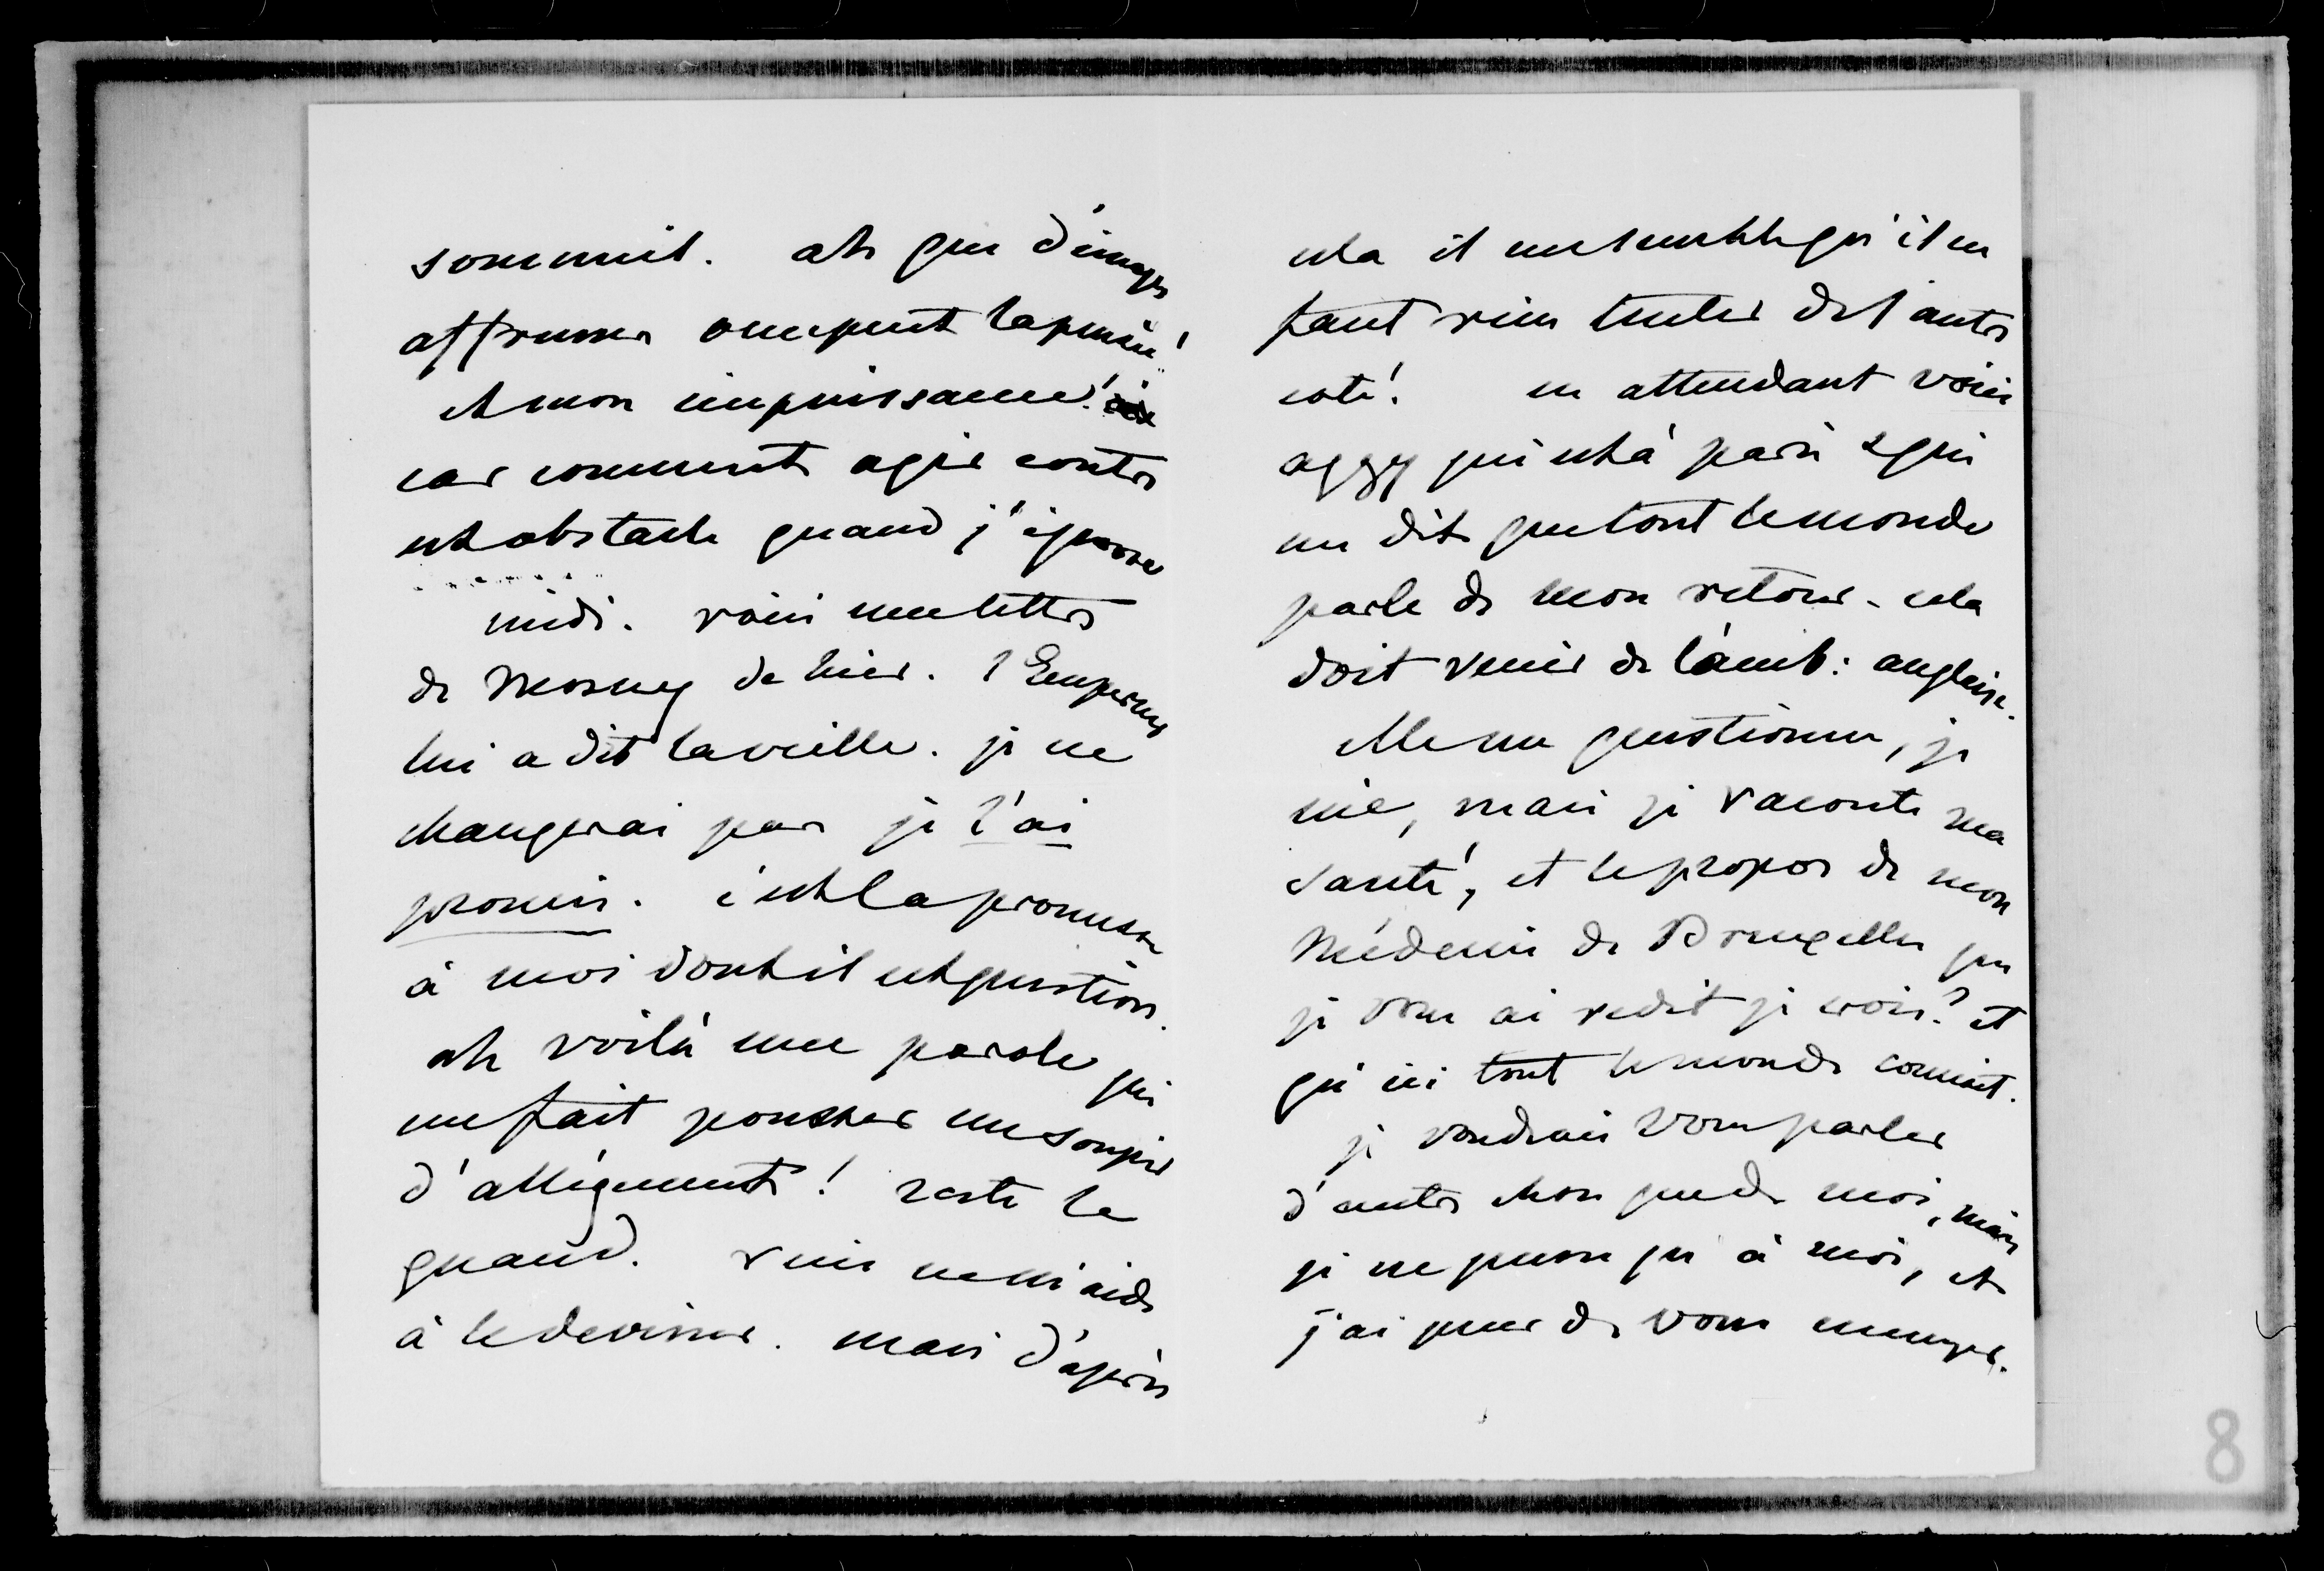 sommeil. ah que d'images
affreuses occupent la pensée!
et mon impuissance!
car comment agir contre
cet obstacle quand j'ignore
midi. voici une lettre
de Morny de hier. l'Empereur
lui a dit la veille. je ne
changerai pas je l'ai
promis. c'est la promesse
à moi dont il est question.
ah voilà une parole qui
me fait pousser un soupir
d'allégement! reste le
quand. rien ne m'aide
à le deviner. mais d'après
cela il me semble qu'il ne
faut rien tenter de l'autre
coté! en attendant voici
aggy qui est à paris & qui
me dit que tout le monde
parle de mon retour. cela
doit venir de l'amb: anglaise.
Elle me questionne, je
nie, mais je raconte ma
santé, et le propos de mon
Médecin de Bruxelles que
je vous ai redit je crois? et
qu'ici tout le monde connait.
je voudrais vous parler
d'autre chose que de moi, mais
je ne pense qu'à moi, et
j'ai peur de vous ennuyer.
8